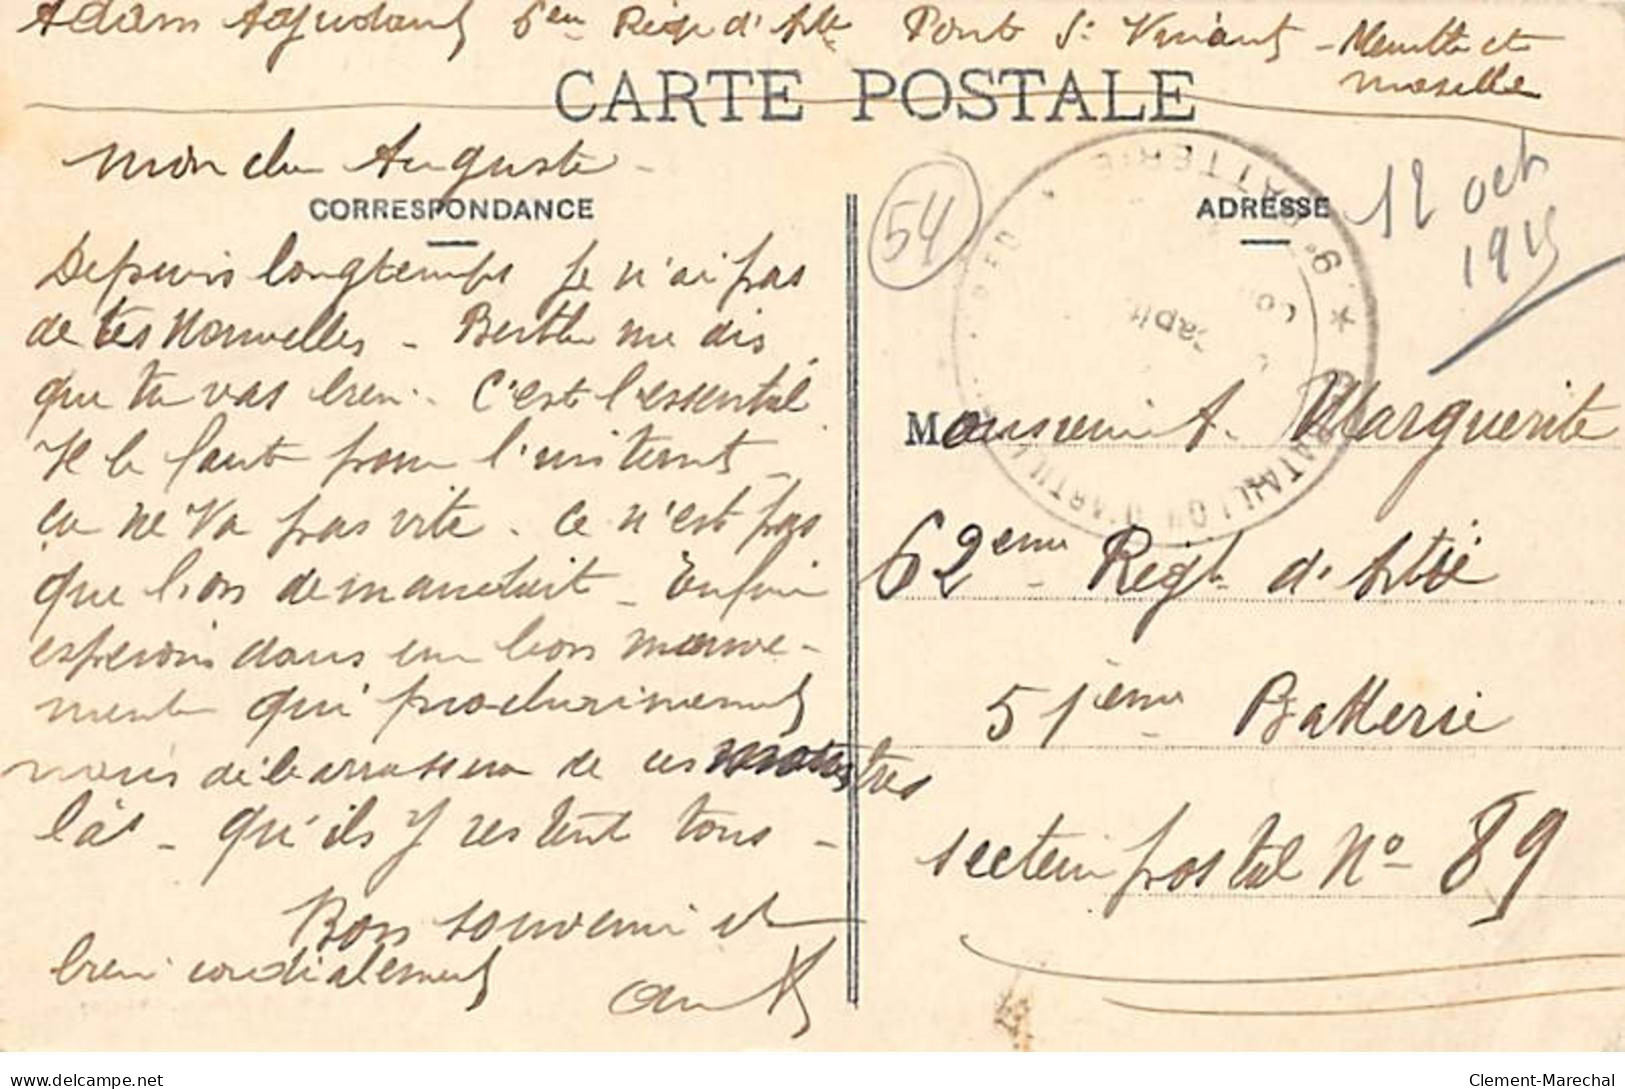 Adam Adjudant 6em Régt d'Atte Pont St Vincent - Meurthe et
moselle
CARTE POSTALE
mon cher Auguste -
CORRESPONDANCE
Depuis longtemps je n'ai pas
de tes nouvelles - Berthe me dis
que tu vas bien. C'est l'essentiel
Il le faut pour l'instant -
ça ne va pas vite. Ce n'est pas
que l'on demandait - Enfin
esperons dans un bon mouve-
ment qui prochainement
nous débarrassera de ces monstres
là - qu'ils y restent tous -
Bon souvenir et
bien cordialement
54
ADRESSE
12 oct
1915
6e BATTERIE * BATAILLON D'ARTILLERIE
Monsieur A. Marguerite
62eme Régt d'Atie
51eme Batterie
secteur postal No 89
Clement-Marechal
delcampe.net